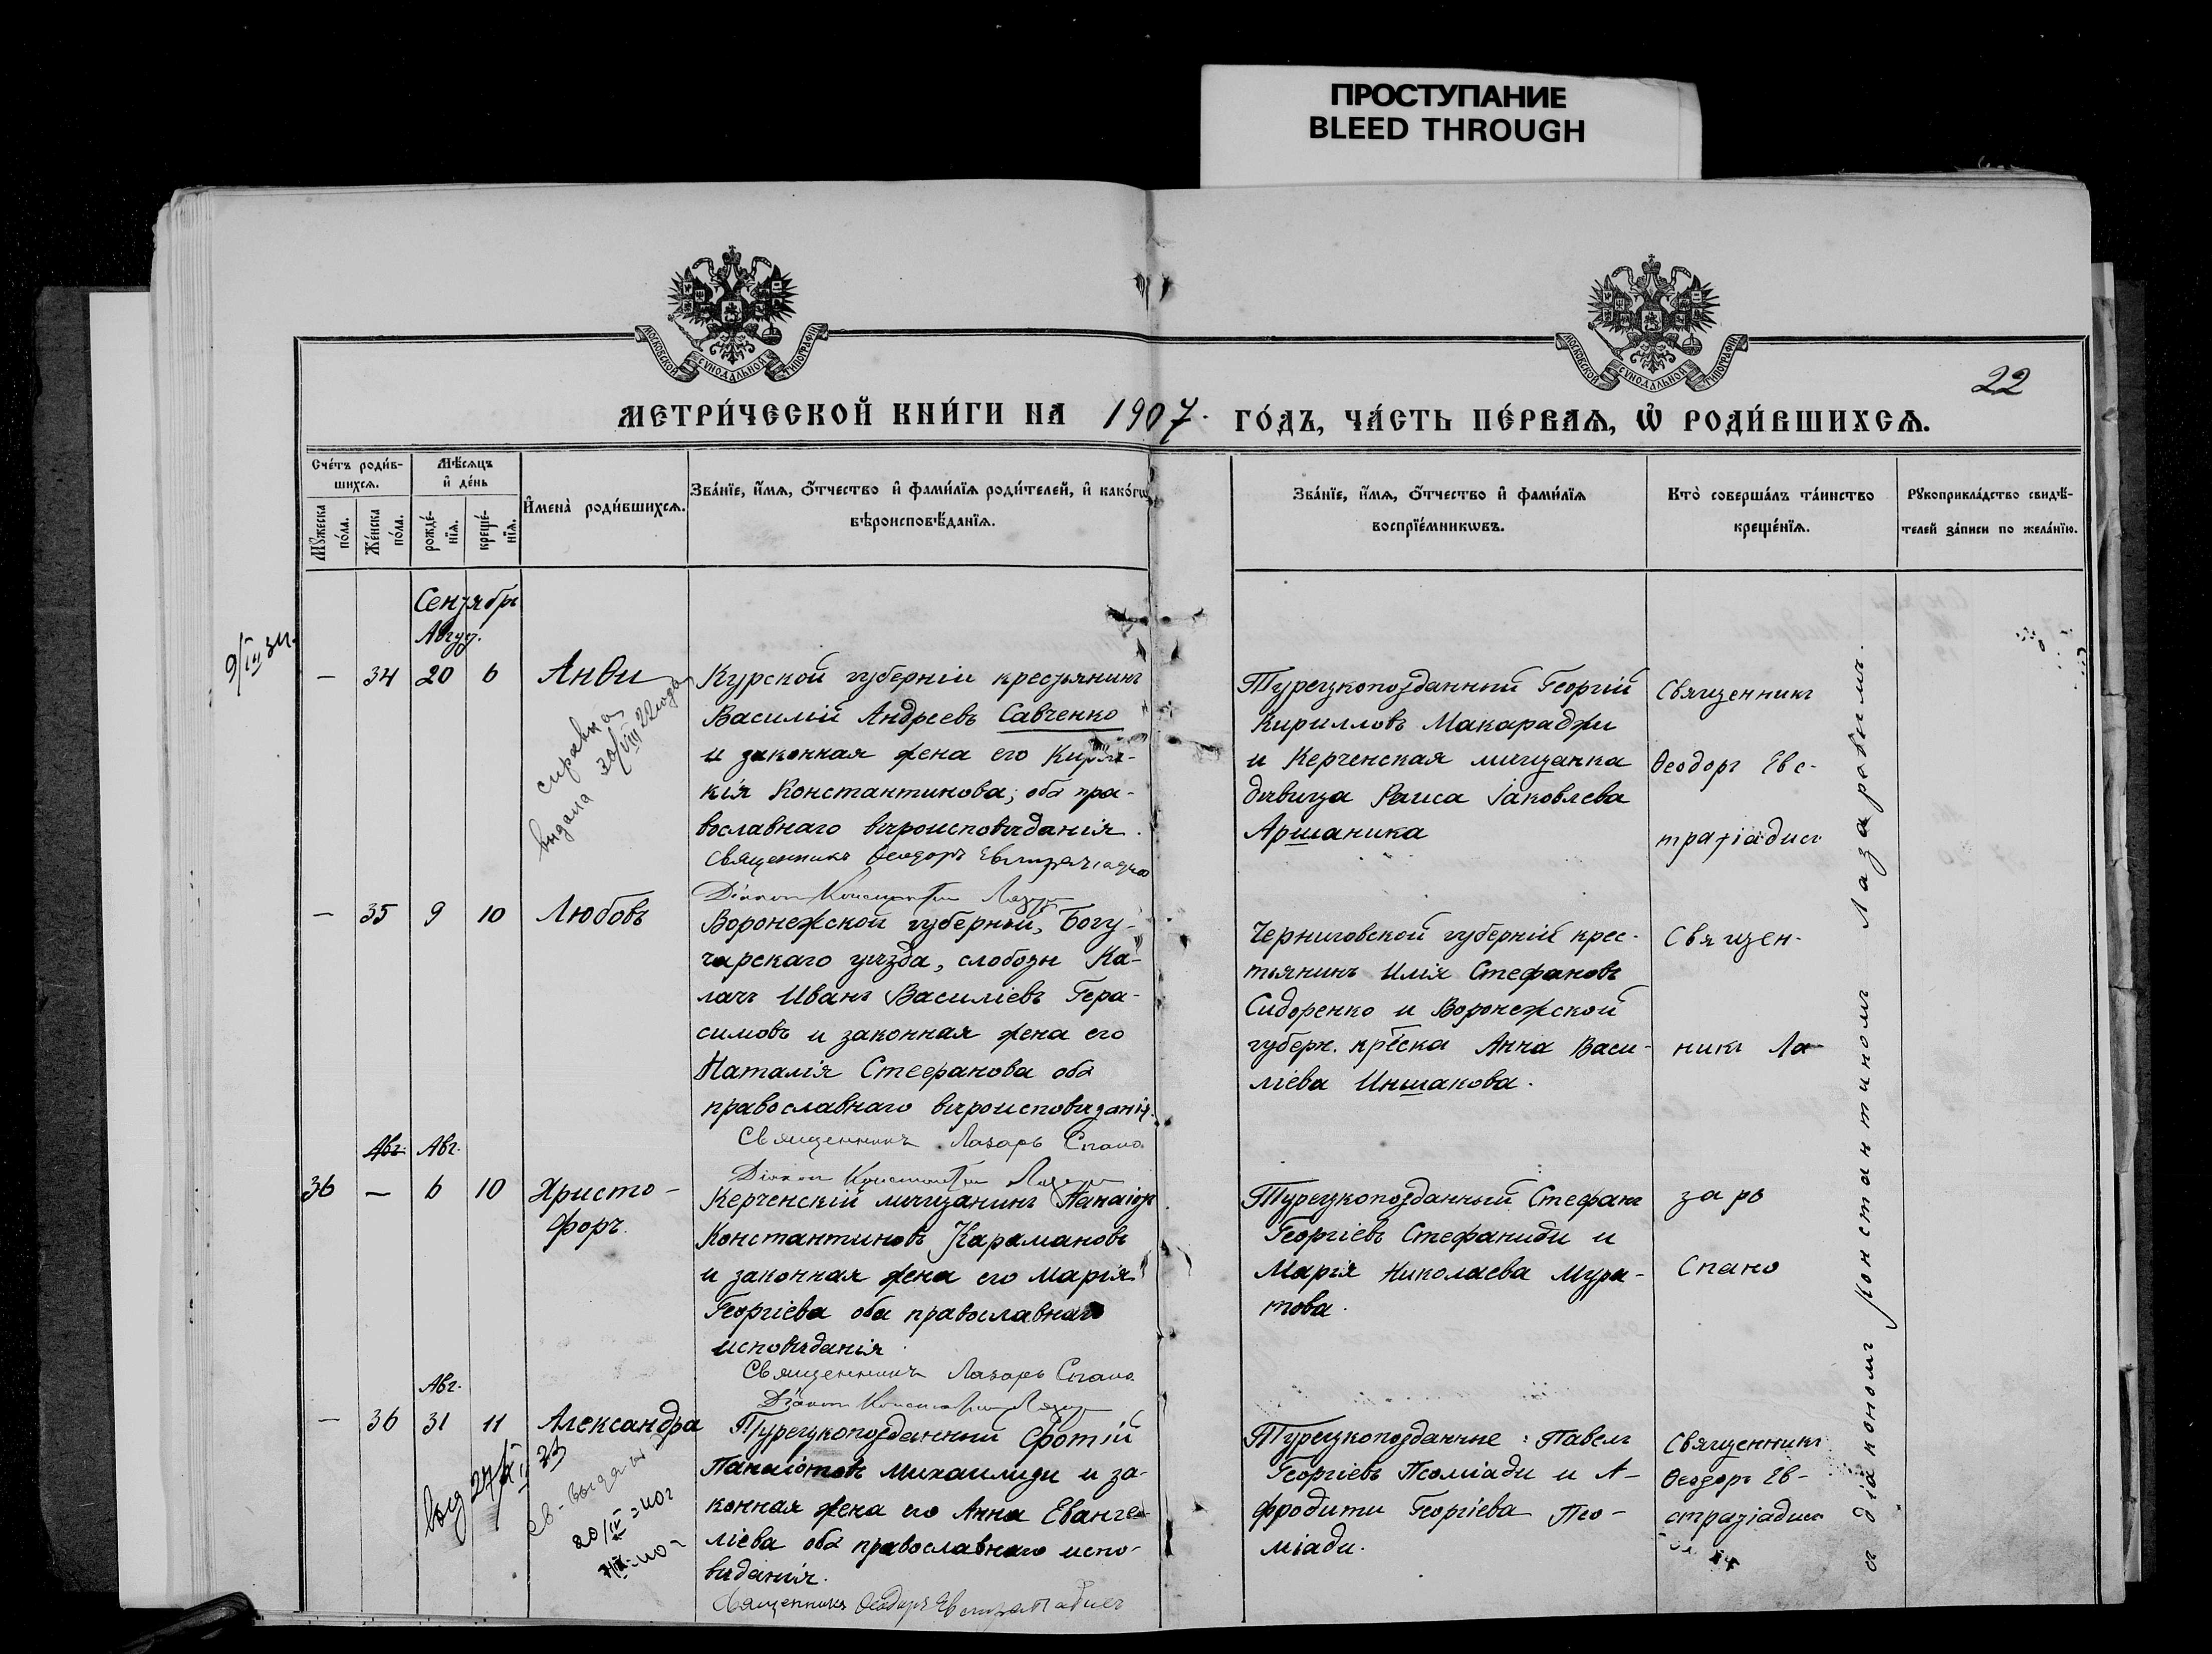 ПРОСТУПАНИЕ
BLEED THROUGH
МОСКОВСКОЙ СѴНОДАЛЬНОЙ ТИПОГРАФІИ
МОСКОВСКОЙ СѴНОДАЛЬНОЙ ТИПОГРАФІИ
22
МЕТРИ́ЧЕСКОЙ КНИ́ГИ НА 1907. ГО́ДЪ, ЧА́СТЬ ПЕ́РВАѦ, Ѡ҆ РОДИ́ВШИХСѦ.
Сче́тъ роди́в-
шихсѧ.
Мѣ́сѧцъ
и҆ де́нь
Мꙋ́жеска
по́ла.
Же́нска
по́ла.
рожде́-
нїѧ.
креще́-
нїѧ.
И҆мена̀ роди́вшихсѧ.
Зва́нїе, и҆́мѧ, ѻ҆́тчество и҆ фами́лїѧ роди́телей, и҆ како́гѡ
вѣроисповѣ́данїѧ.
Зва́нїе, и҆́мѧ, ѻ҆́тчество и҆ фами́лїѧ
воспрїе́мникѡвъ.
Кто̀ соверша́лъ та́инство
креще́нїѧ.
Рꙋкоприкла́дство свидѣ́-
телей за́писи по жела́нїю.
Сентябрь
Авгус.
— 34 20 6 Анѳи
справка
выдана 30/VIII 22 года
Курской губерніи крестьянинъ
Василій Андреевъ Савченко
и законная жена его Кирiа-
кія Константинова; оба пра-
вославнаго вѣроисповѣданія.
Священникъ Ѳеодоръ Евстратіадисъ
Діаконъ Константинъ
Турецкоподданный Георгій
Кирилловъ Макараджи
и Керченская мѣщанка
дѣвица Раиса Іаковлева
Аршаника
Священникъ
Ѳеодоръ Евс-
тратіадисъ
— 35 9 10 Любовь
Воронежской губерніи, Богу-
чарскаго уѣзда, слободы Ка-
лачъ Иванъ Василіевъ Гера-
симовъ и законная жена его
Наталія Стефанова оба
православнаго вѣроисповѣданія.
Священникъ Лазарь Спано
Діаконъ Константинъ
Черниговской губерніи крес-
тьянинъ Илія Стефановъ
Сидоренко и Воронежской
губерн. кр‑ска Анна Васи-
ліева Иншакова.
Священ-
никъ Ла-
Авг. Авг.
36 — 6 10 Христо-
форъ.
Керченскій мѣщанинъ Панаіотъ
Константиновъ Караmановъ
и законная жена его Марія
Георгіева оба православнаго
исповѣданія
Священникъ Лазарь Спано
Діаконъ Константинъ
Турецкоподданный Стефанъ
Георгіевъ Стефаниди и
Марія Николаева Мура-
това.
зарь
Спано
Авг.
— 36 31 11 Александра
Турецкоподданный Фотій
Панаіотовъ Михаилиди и за-
конная жена его Анна Еванге-
ліева оба православнаго испо-
вѣданія.
Священникъ Ѳеодоръ Евстратіадисъ
Турецкоподданные: Павелъ
Георгіевъ Псоміади и А-
фродити Георгіева Псо-
міади.
Священникъ
Ѳеодоръ Ев-
стратіадисъ
съ діакономъ Константиномъ Лазаровымъ.